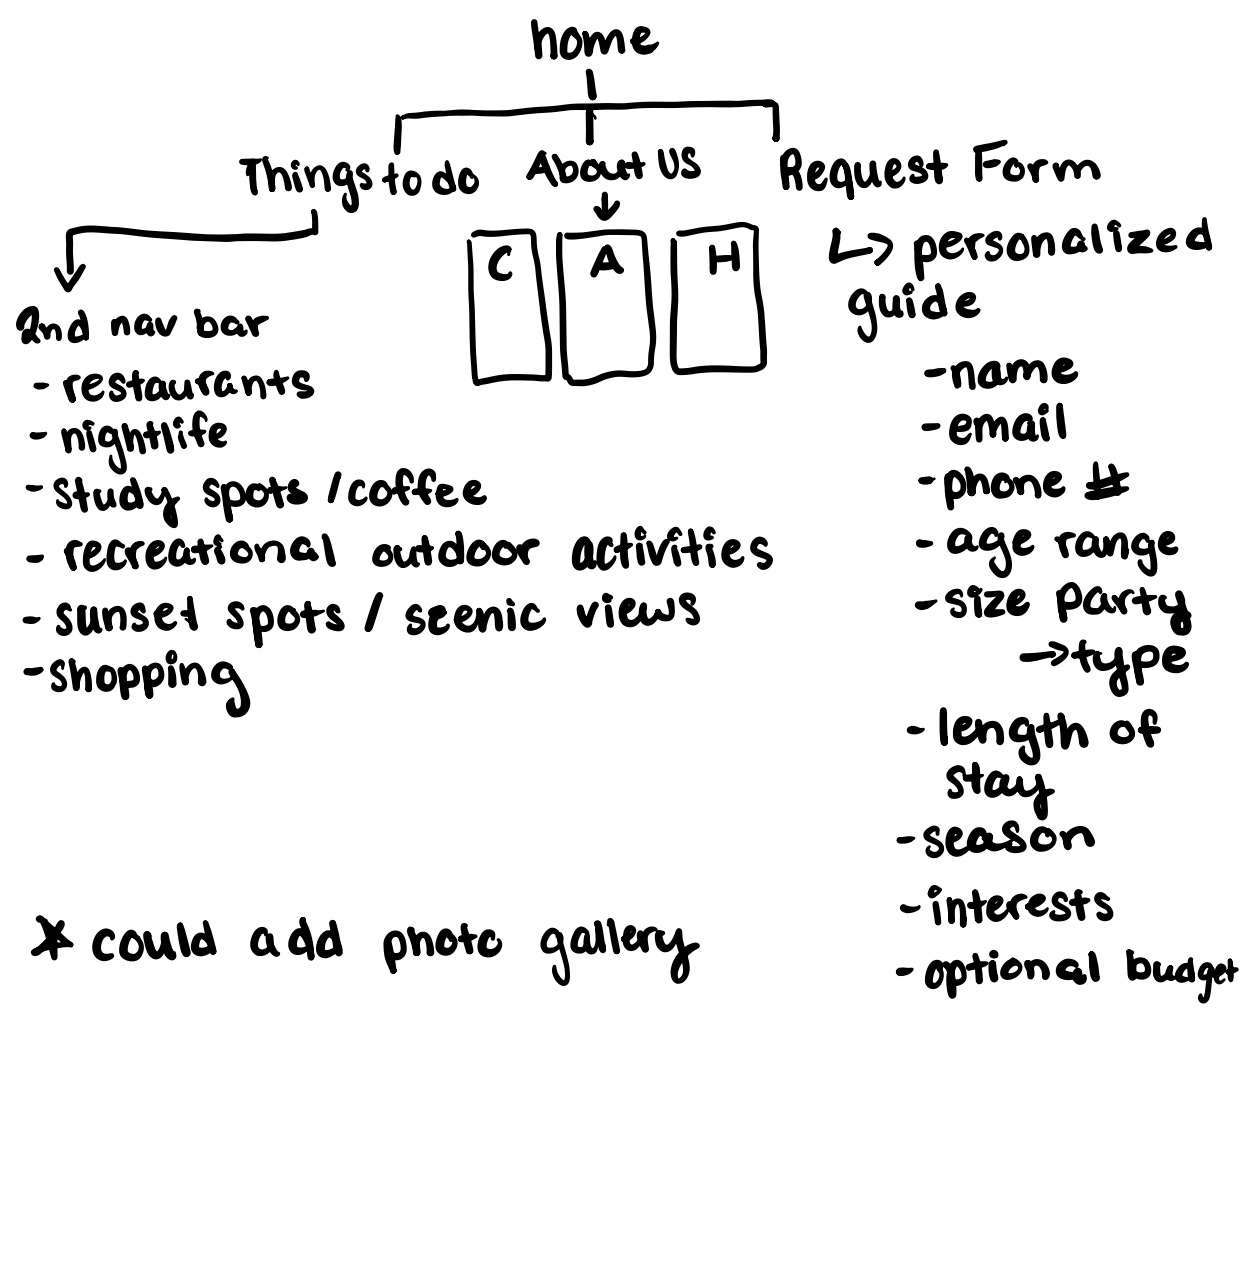 home
Things to do
About US
Request Form
C
A
H
2nd nav bar
- restaurants
- nightlife
- study spots / coffee
- recreational outdoor activities
- sunset spots / scenic views
- shopping
personalized
guide
- name
- email
- phone #
- age range
- size party
→ type
- length of
stay
- season
- interests
- optional budget
* could add photo gallery